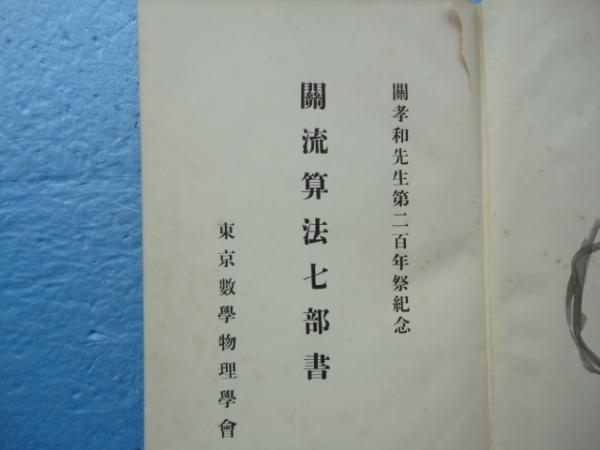 關孝和先生第二百年祭紀念
關流算法七部書
東京數學物理學會